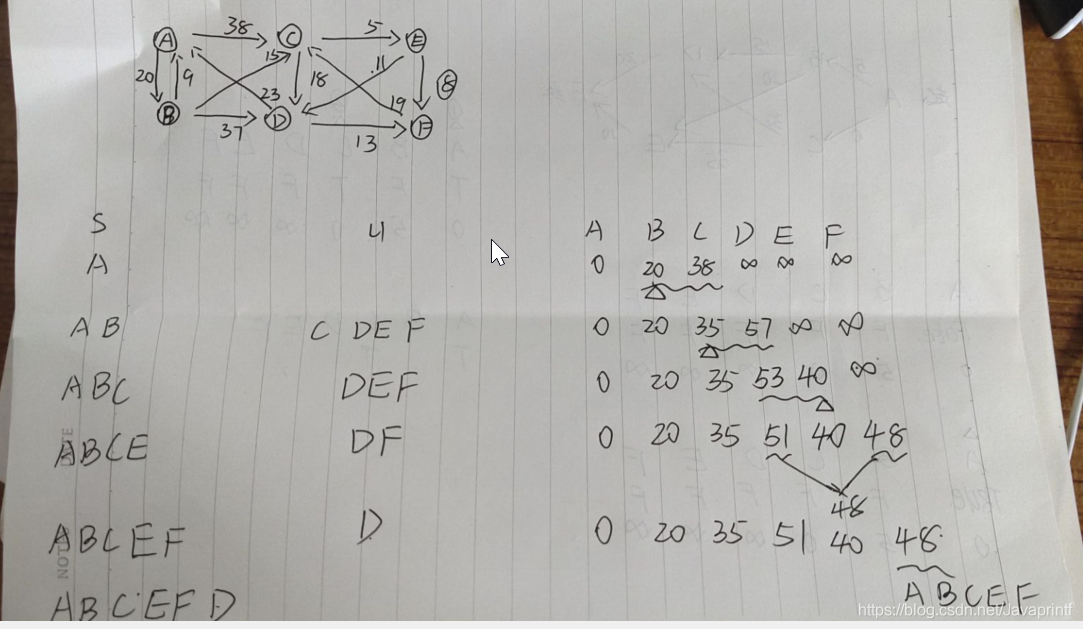 A 38 C 5 E
20 9 15 18 11 8
23 19
B 37 D 13 F
S U A B C D E F
A 0 20 38 ∞ ∞ ∞
A B C D E F 0 20 35 57 ∞ ∞
A B C D E F 0 20 35 53 40 ∞
A B C E D F 0 20 35 51 40 48
48
A B C E F D 0 20 35 51 40 48
A B C E F D A B C E F
https://blog.csdn.net/Javaprintf